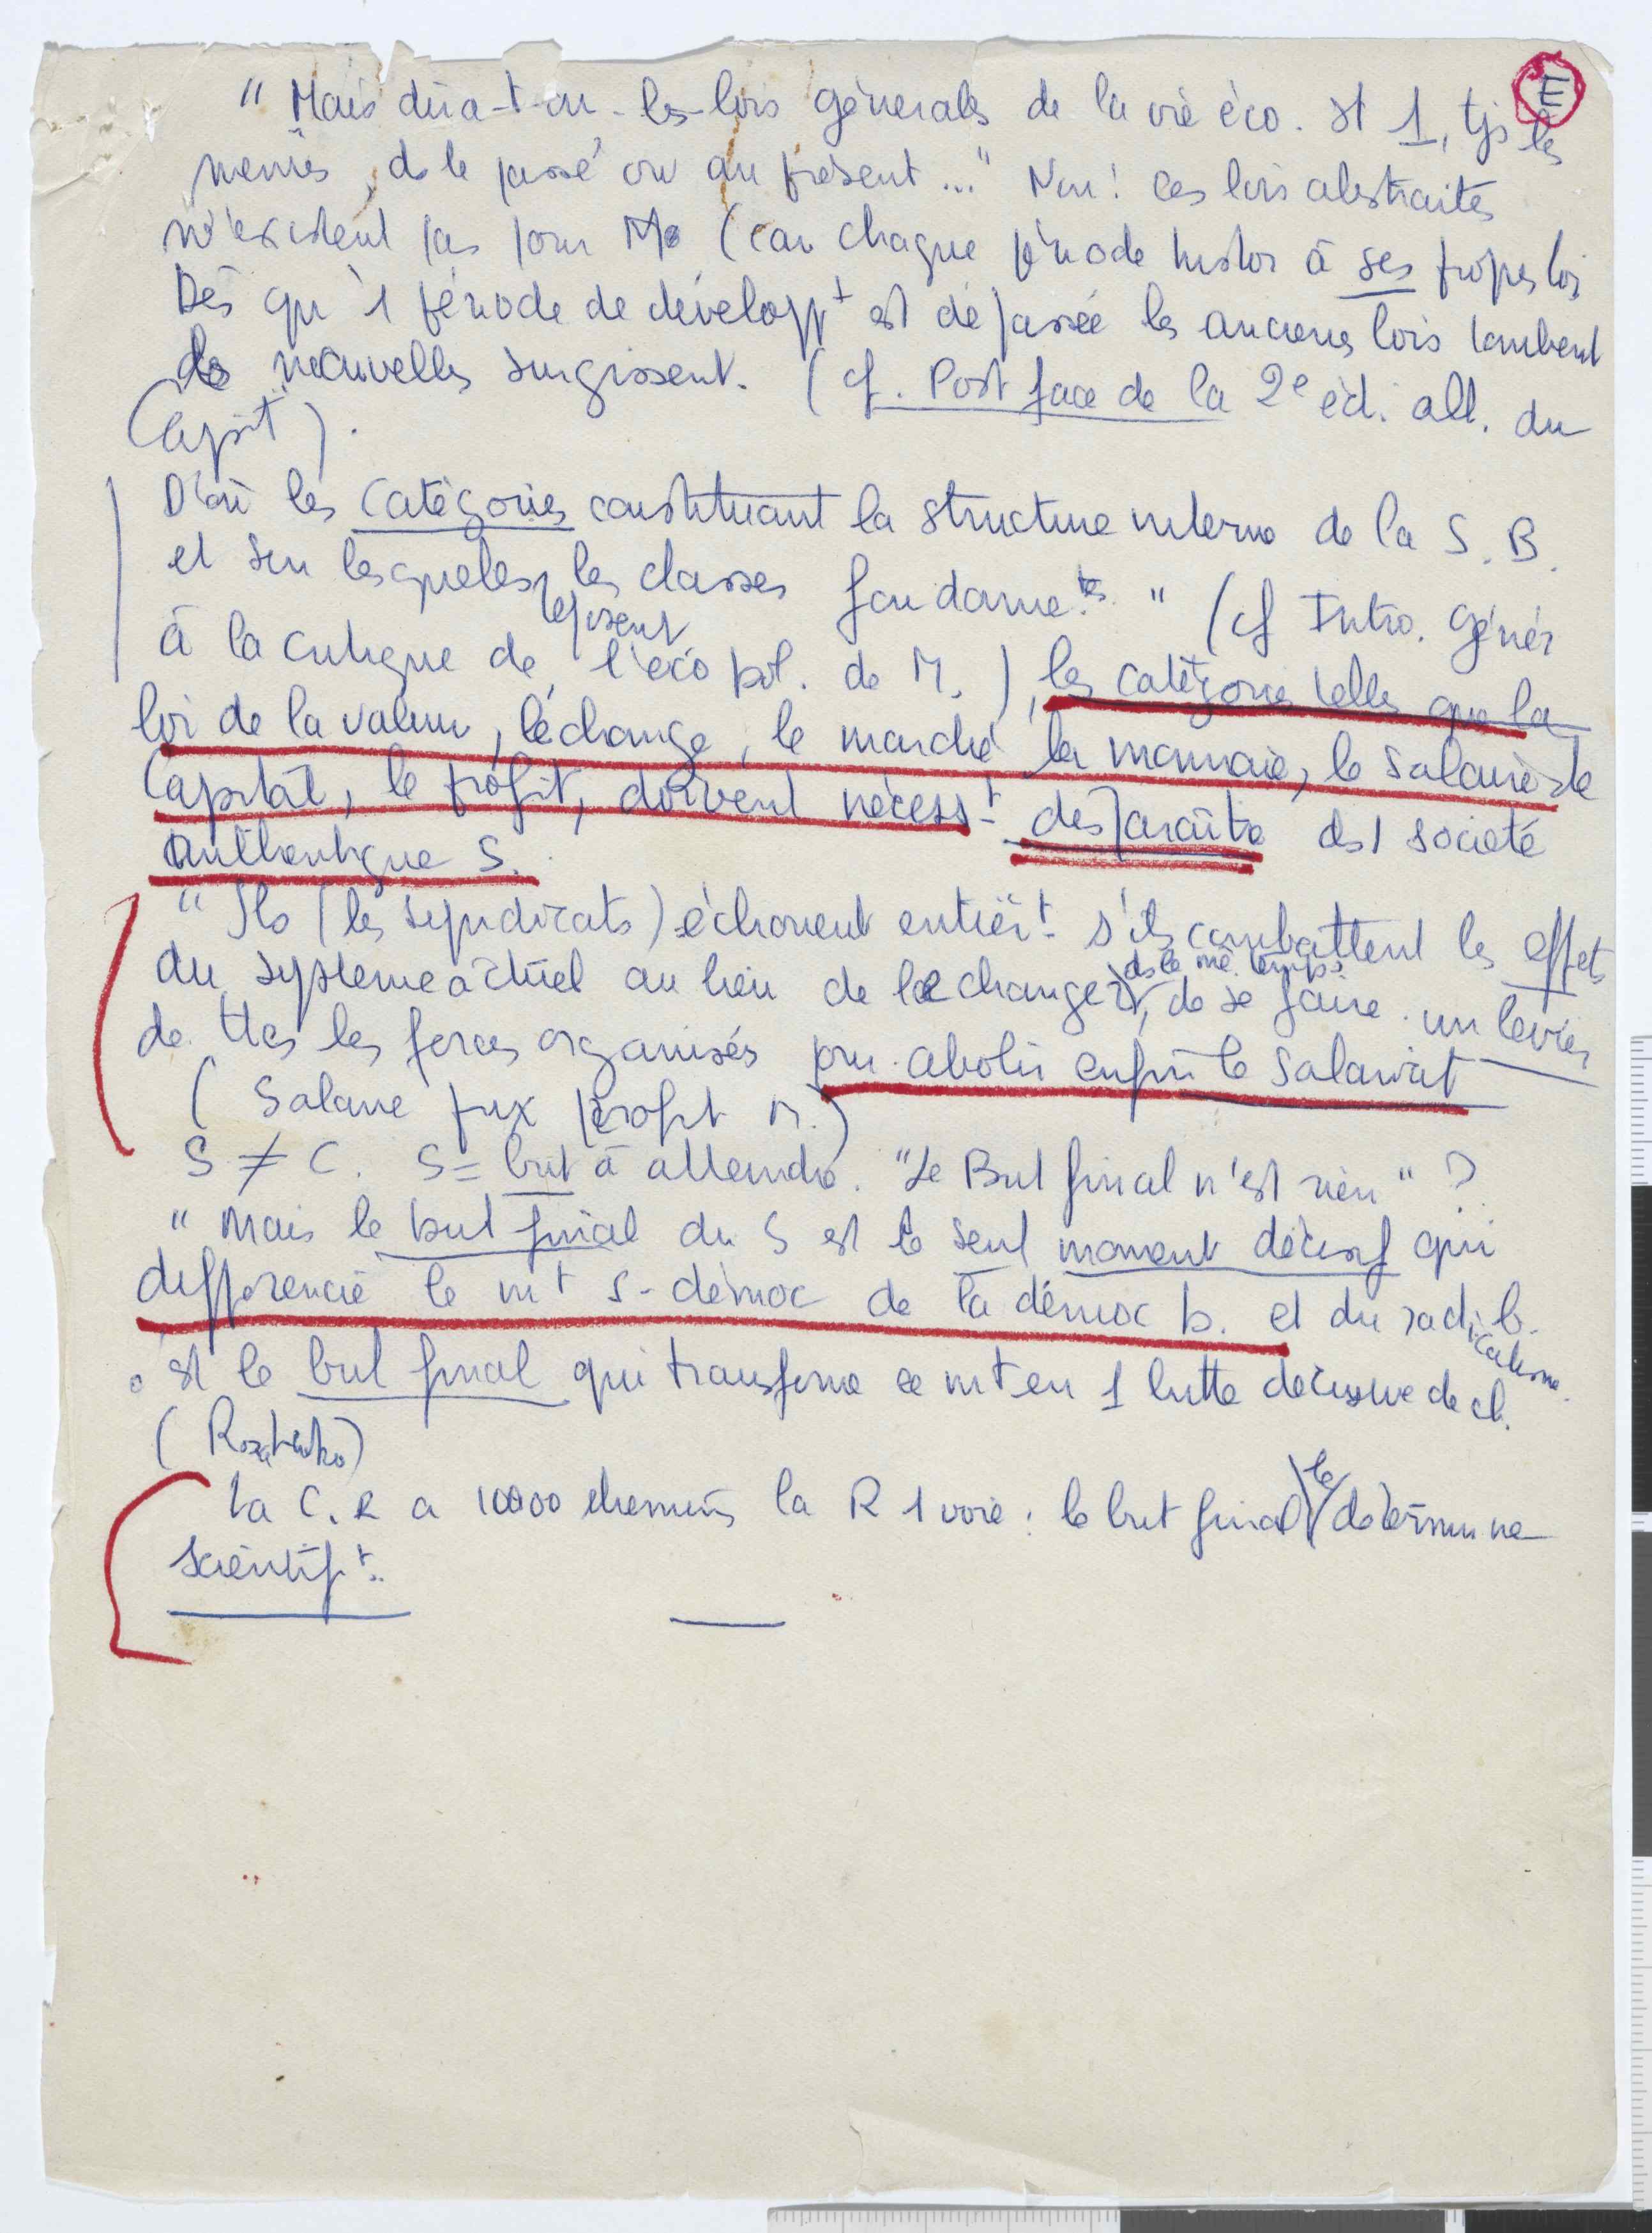 E
" Mais dira-t-on - les lois générales de la vie éco. st 1, tjs les
mêmes, ds le passé ou au présent ..." Non! ces lois abstraites
n'existent pas pour M (car chaque période histor à ses propres lois
Dès qu'1 période de développt est dépassée les anciennes lois tombent
de nouvelles surgissent. (cf. Postface de la 2e éd. all. du
Capit).
D'où les catégories constituant la structure interne de la S.B.
et sur lesquelles reposent les classes fondamles " (cf Intro. génér
à la critique de l'éco pol. de M.), les catégories telles que la
loi de la valeur, l'échange, le marché la monnaie, le salaire le
Capital, le profit, doivent nécesst disparaître ds 1 société
authentique S.
" Ils (les syndicats) échouent entièrt s'ils combattent les effets
du système actuel au lieu de le changer ds le mê temps, de se faire un levier
de ttes les forces organisés pour abolir enfin le salariat
(Salaire prix profit M.)
S ≠ C. S = but à atteindre. "Le But final n'est rien" ?
" Mais le but final du S est le seul moment décisif qui
différencie le mt s-démoc de la démoc b. et du radicalisme b.
st le but final qui transforme ce mt en 1 lutte décisive de cl.
La C.R a 10000 chemins la R 1 voie : le but final le détermine
scientift.